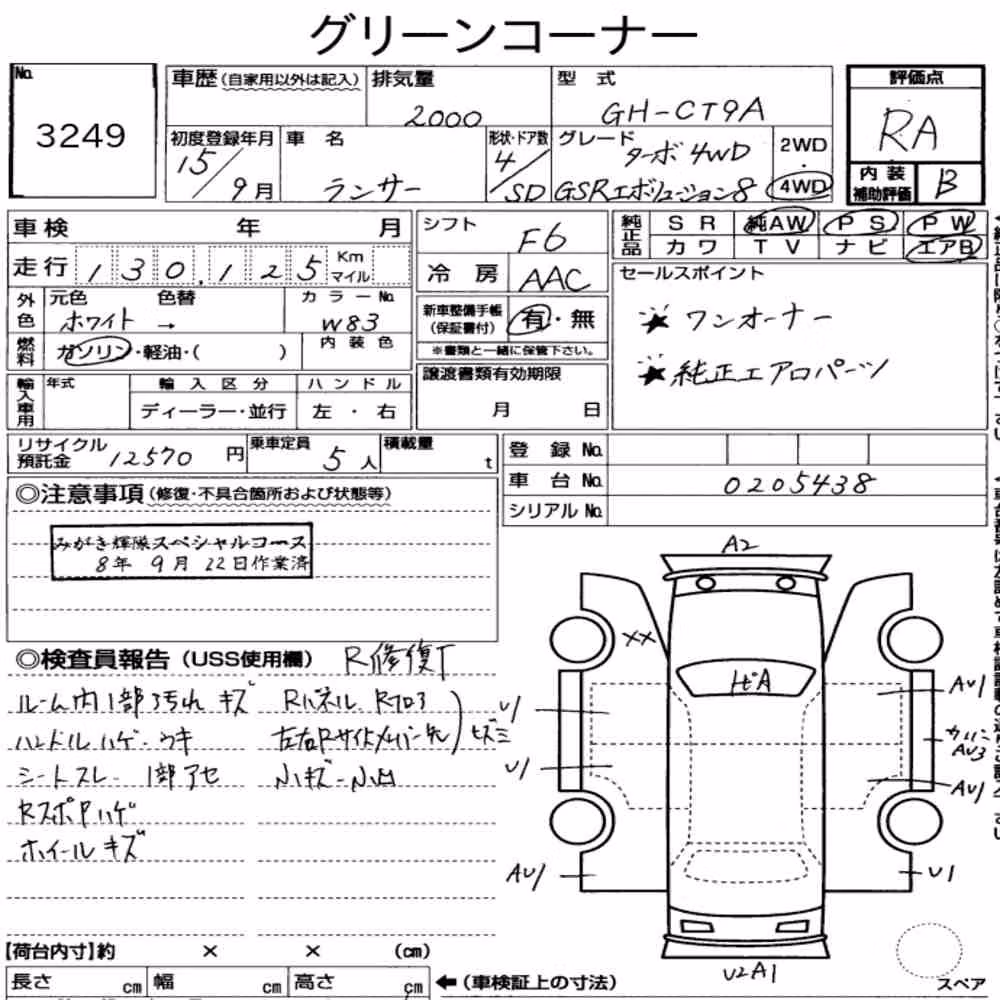 グリーンコーナー
No.
3249
車歴(自家用以外は記入)
排気量
2000
型 式
GH-CT9A
評価点
RA
内装補助評価
B
初度登録年月
15/9月
車 名
ランサー
形状・ドア数
4/SD
グレード
ターボ4WD
GSRエボリューション8
2WD
・
4WD
車検 年 月
走行 130,125 Km マイル
シフト
F6
冷 房
AAC
純正品
SR 純AW PS PW
カワ TV ナビ エアB
外色
元色 色替
ホワイト →
カラーNo.
W83
新車整備手帳(保証書付)
有・無
※書類と一緒に保管下さい。
セールスポイント
★ ワンオーナー
★ 純正エアロパーツ
燃料
ガソリン・軽油・( )
内装色
輸入車用
年式
輸入区分
ディーラー・並行
ハンドル
左 ・ 右
譲渡書類有効期限
月 日
リサイクル預託金
12570円
乗車定員
5人
積載量
t
登 録 No.
車 台 No.
0205438
シリアルNo.
◎注意事項(修復・不具合箇所および状態等)
みがき輝隊スペシャルコース
8年 9月 22日作業済
◎検査員報告(USS使用欄) R修復T
ルーム内1部汚れ キズ
ハンドルハゲ-ウキ
シートスレ- 1部アセ
RスポPハゲ
ホイールキズ
Rパネル R703
左右Rサイドメンバー先
ヒズミ
小キズ-小凹
A2
XX
ヒビA
U1
U1
AU1
AU1
カバー
AU3
AU1
U1
U2A1
スペア
【荷台内寸】約 × × (cm)
長さ cm 幅 cm 高さ cm
←(車検証上の寸法)